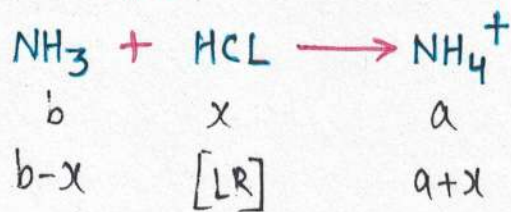 NH₃ + HCL → NH₄⁺
b x a
b-x [LR] a+x